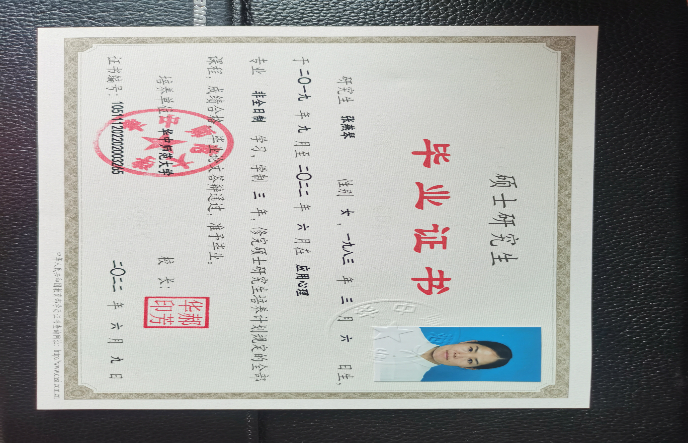 硕士研究生
毕业证书
研究生 张燕琴 性别 女，一九八三年 三 月 六 日生，
于 二〇一九 年 九 月至 二〇二二 年 六 月在 应用心理
专业 非全日制 学习，学制 三 年，修完硕士研究生培养计划规定的全部
课程，成绩合格，毕业论文答辩通过，准予毕业。
培养单位：华中师范大学 校长：
郝芳华印
证书编号： 二〇二二 年 六 月 九 日